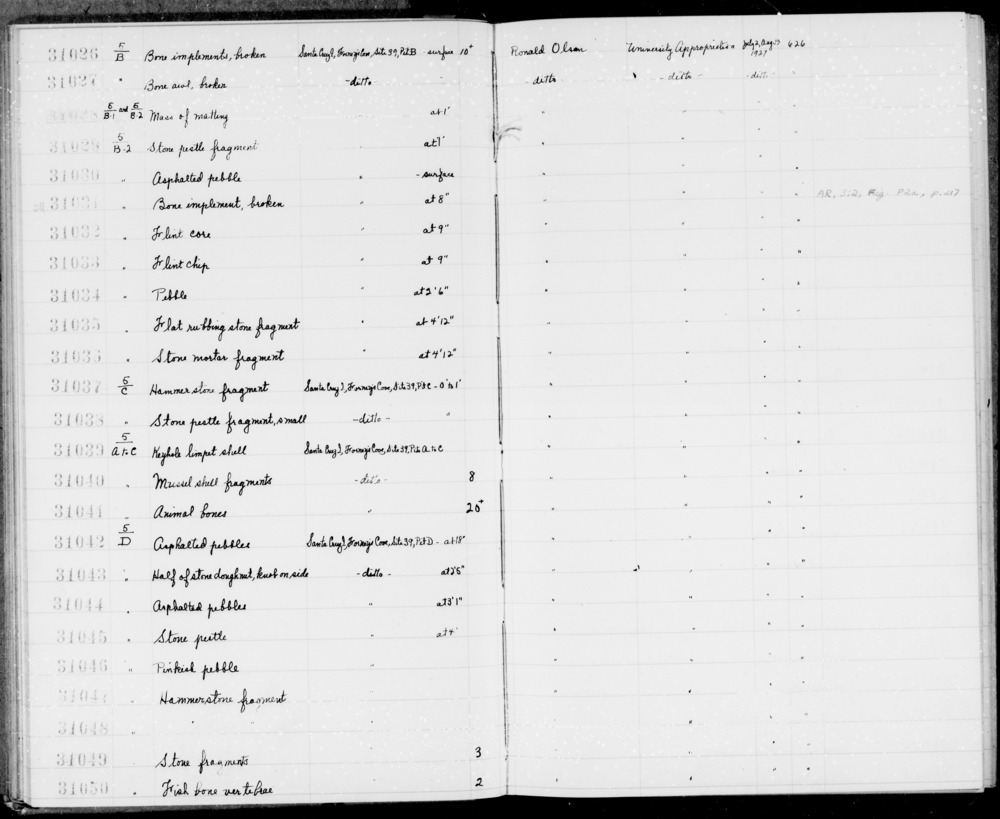 31026 5/B Bone implements, broken Santa Cruz I, Forney's Cove, Site 39, Pit B - surface 10+ Ronald Olson University Appropriation July 2, Aug 13 1927 626
31027 " Bone awl, broken -ditto- " -ditto- -ditto- -ditto-
31028 5/B-1 and 5/B-2 Mass of matting at 1' "
31029 5/B-2 Stone pestle fragment " at 1' "
31030 " Asphalted pebble " - surface "
31031 " Bone implement, broken " at 8" "
31032 " Flint core " at 9" "
31033 " Flint chip " at 9" "
31034 " Pebble " at 2'6" "
31035 " Flat rubbing stone fragment " at 4'12" "
31036 " Stone mortar fragment " at 4'12" "
31037 5/C Hammerstone fragment Santa Cruz I, Forney's Cove, Site 39, Pit C - 0' to 1' "
31038 " Stone pestle fragment, small -ditto- " "
31039 5/A to C Keyhole limpet shell Santa Cruz I, Forney's Cove, Site 39, Pits A to C "
31040 " Mussel shell fragments -ditto- 8 "
31041 " Animal bones " 20+ "
31042 5/D Asphalted pebbles Santa Cruz I, Forney's Cove, Site 39, Pit D - at 18" "
31043 " Half of stone doughnut, knob on side -ditto- at 2'5" "
31044 " Asphalted pebbles " at 3'1" "
31045 " Stone pestle " at 4' "
31046 " Pinkish pebble " "
31047 " Hammerstone fragment "
31048 " " " " "
31049 Stone fragments 3 "
31050 " Fish bone vertebrae 2 "